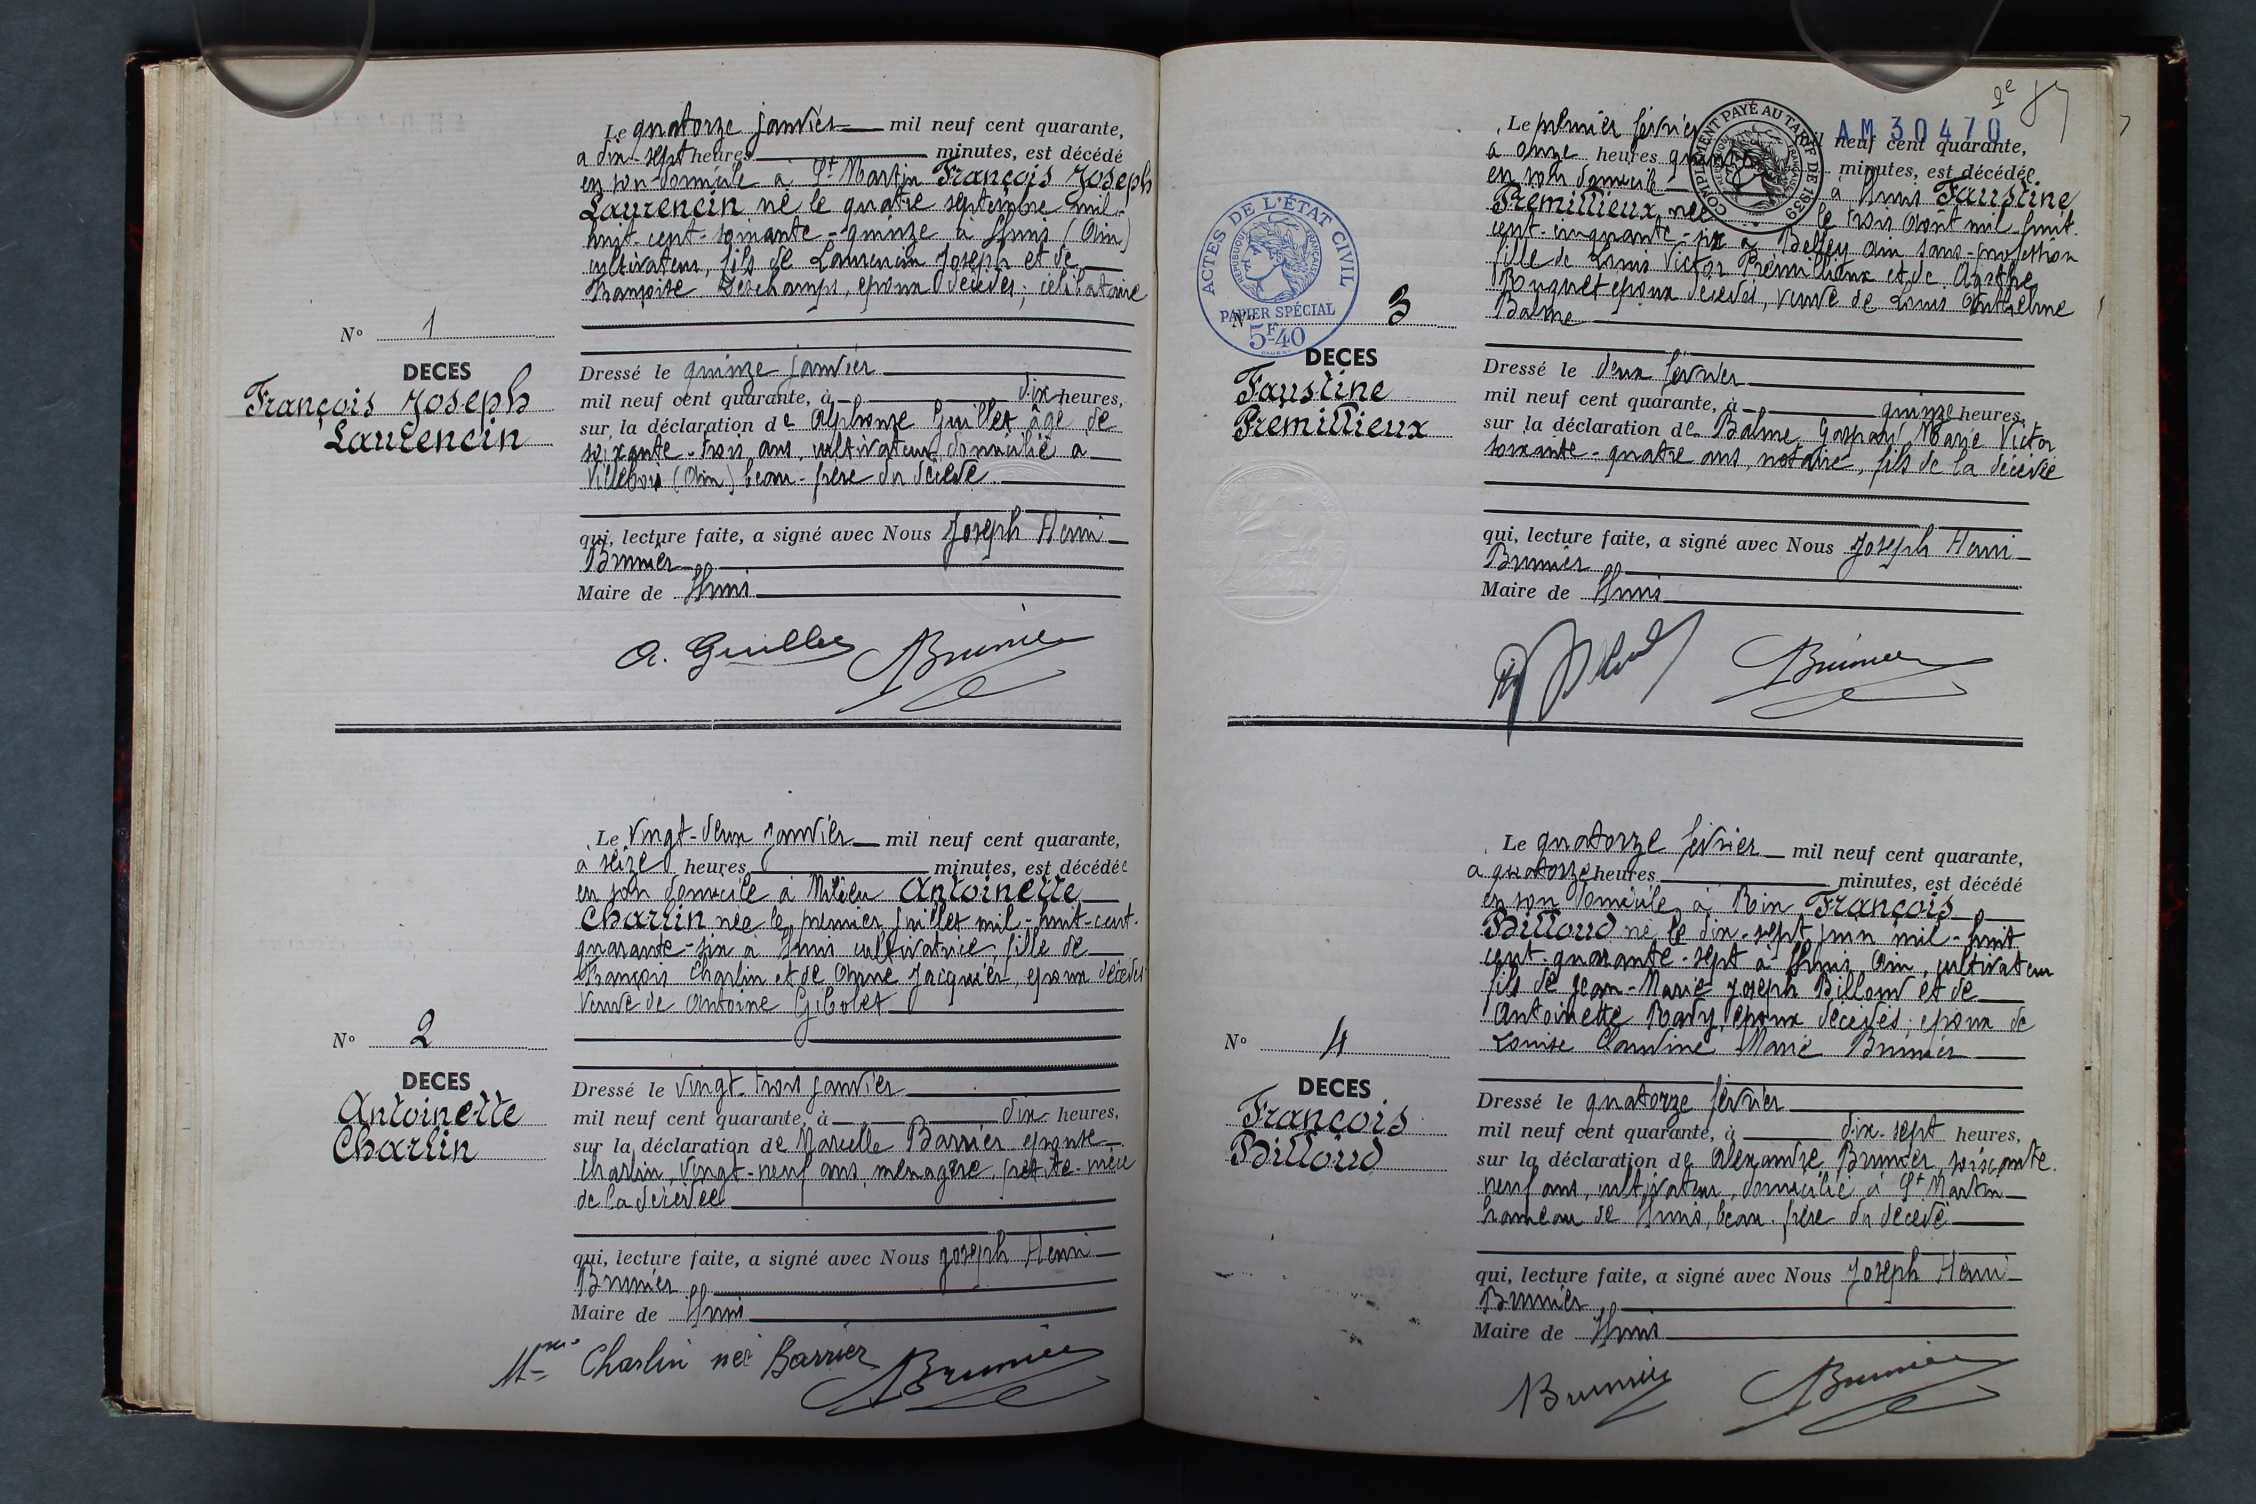 Le quatorze janvier mil neuf cent quarante,
à dix-sept heures minutes, est décédé
en son domicile à St Martin François Joseph
Laurencin né le quatre septembre mil-
huit-cent-soixante-quinze à Lhuis (Ain)
cultivateur, fils de Laurencin Joseph et de
Françoise Deschamps, époux décédés; célibataire
N° 1
DECES
François Joseph
Laurencin
Dressé le quinze janvier
mil neuf cent quarante, à dix heures,
sur la déclaration de Alphonse Guillet âgé de
soixante-trois ans, cultivateur, domicilié à
Villebois (Ain) beau-frère du décédé
qui, lecture faite, a signé avec Nous Joseph Henri
Brunier
Maire de Lhuis
A. Guillet Brunier
Le vingt-deux janvier mil neuf cent quarante,
à seize heures minutes, est décédée
en son domicile à Millieu Antoinette
Charlin née le premier juillet mil-huit-cent-
quarante-six à Lhuis cultivatrice, fille de
François Charlin et de Anne Jacquier, époux décédés
veuve de Antoine Gibolet
N° 2
DECES
Antoinette
Charlin
Dressé le vingt-trois janvier
mil neuf cent quarante, à dix heures,
sur la déclaration de Marcelle Barrier épouse
Charlin, vingt-neuf ans, ménagère, petite-nièce
de la décédée
qui, lecture faite, a signé avec Nous Joseph Henri
Brunier
Maire de Lhuis
Mme Charlin née Barrier Brunier
2e
AM 30470
COMPLEMENT PAYÉ AU TARIF DE 1939
REPUBLIQUE FRANÇAISE
Le premier février mil neuf cent quarante,
à onze heures minutes, est décédée
en son domicile à Lhuis Faustine
Prémillieux née le trois août mil huit-
cent-cinquante-six à Belley Ain sans-profession
fille de Louis Victor Prémillieux et de Agathe
Ruguet époux décédés, veuve de Louis Anthelme
Balme
ACTES DE L'ÉTAT CIVIL
REPUBLIQUE FRANÇAISE
PAPIER SPÉCIAL
5F40
N° 3
DECES
Faustine
Prémillieux
Dressé le deux février
mil neuf cent quarante, à quinze heures,
sur la déclaration de Balme Gaspard Marie Victor
soixante-quatre ans, notaire, fils de la décédée
qui, lecture faite, a signé avec Nous Joseph Henri
Brunier
Maire de Lhuis
Brunier
Le quatorze février mil neuf cent quarante,
à quatorze heures minutes, est décédé
en son domicile à Rix François
Billoud né le dix-sept juin mil-huit
cent-quarante-sept à Lhuis Ain, cultivateur
fils de Jean-Marie Joseph Billoud et de
Antoinette Ravy, époux décédés; époux de
Louise Claudine Marie Brunier
N° 4
DECES
François
Billoud
Dressé le quatorze février
mil neuf cent quarante, à dix-sept heures,
sur la déclaration de Alexandre Brunier, soixante-
neuf ans, cultivateur, domicilié à St Martin
hameau de Lhuis, beau-frère du décédé
qui, lecture faite, a signé avec Nous Joseph Henri
Brunier
Maire de Lhuis
Brunier Brunier